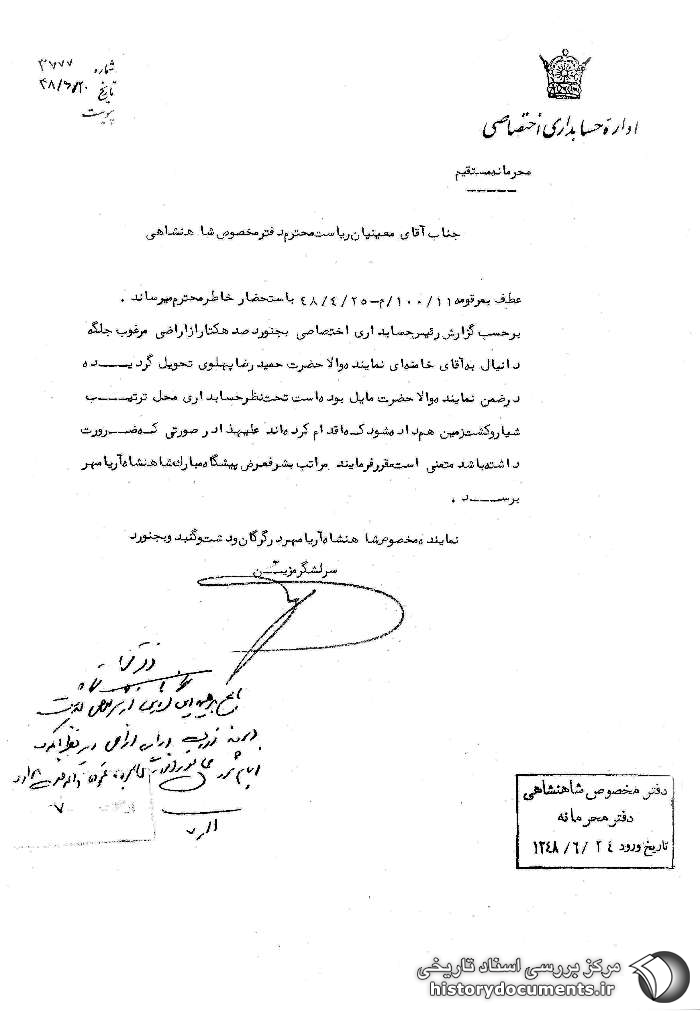 شماره ۳۷۷۷
تاریخ ۴۸/۶/۲۰
پیوست
اداره حسابداری اختصاصی
محرمانه مستقیم
جناب آقای معینیان ریاست محترم دفتر مخصوص شاهنشاهی
عطف بمرقومه ۱۱/۱۰۰/م-۴۸/۴/۲۵ باستحضار خاطر محترم میرساند .
برحسب گزارش رئیس حسابداری اختصاصی بجنورد صد هکتار از اراضی مرغوب جلگه
دانیال به آقای خامنه‌ای نماینده والا حضرت حمید رضا پهلوی تحویل گردیده
درضمن نماینده والا حضرت مایل بوده است تحت نظر حسابداری محل ترتیب
شیار و کشت زمین هم داده شود که اقدام کرده‌اند علیهذا در صورتی که ضرورت
داشته باشد متمنی است مقرر فرمایند مراتب بشرفعرض پیشگاه مبارک شاهنشاه آریامهر
برسد .
نماینده مخصوص شاهنشاه آریامهر در گرگان و دشت و گنبد و بجنورد
سرلشگر مزین
دفتر مخصوص شاهنشاهی
دفتر محرمانه
تاریخ ورود ۱۳۴۸/۶/۲۴
مرکز بررسی اسناد تاریخی
historydocuments.ir